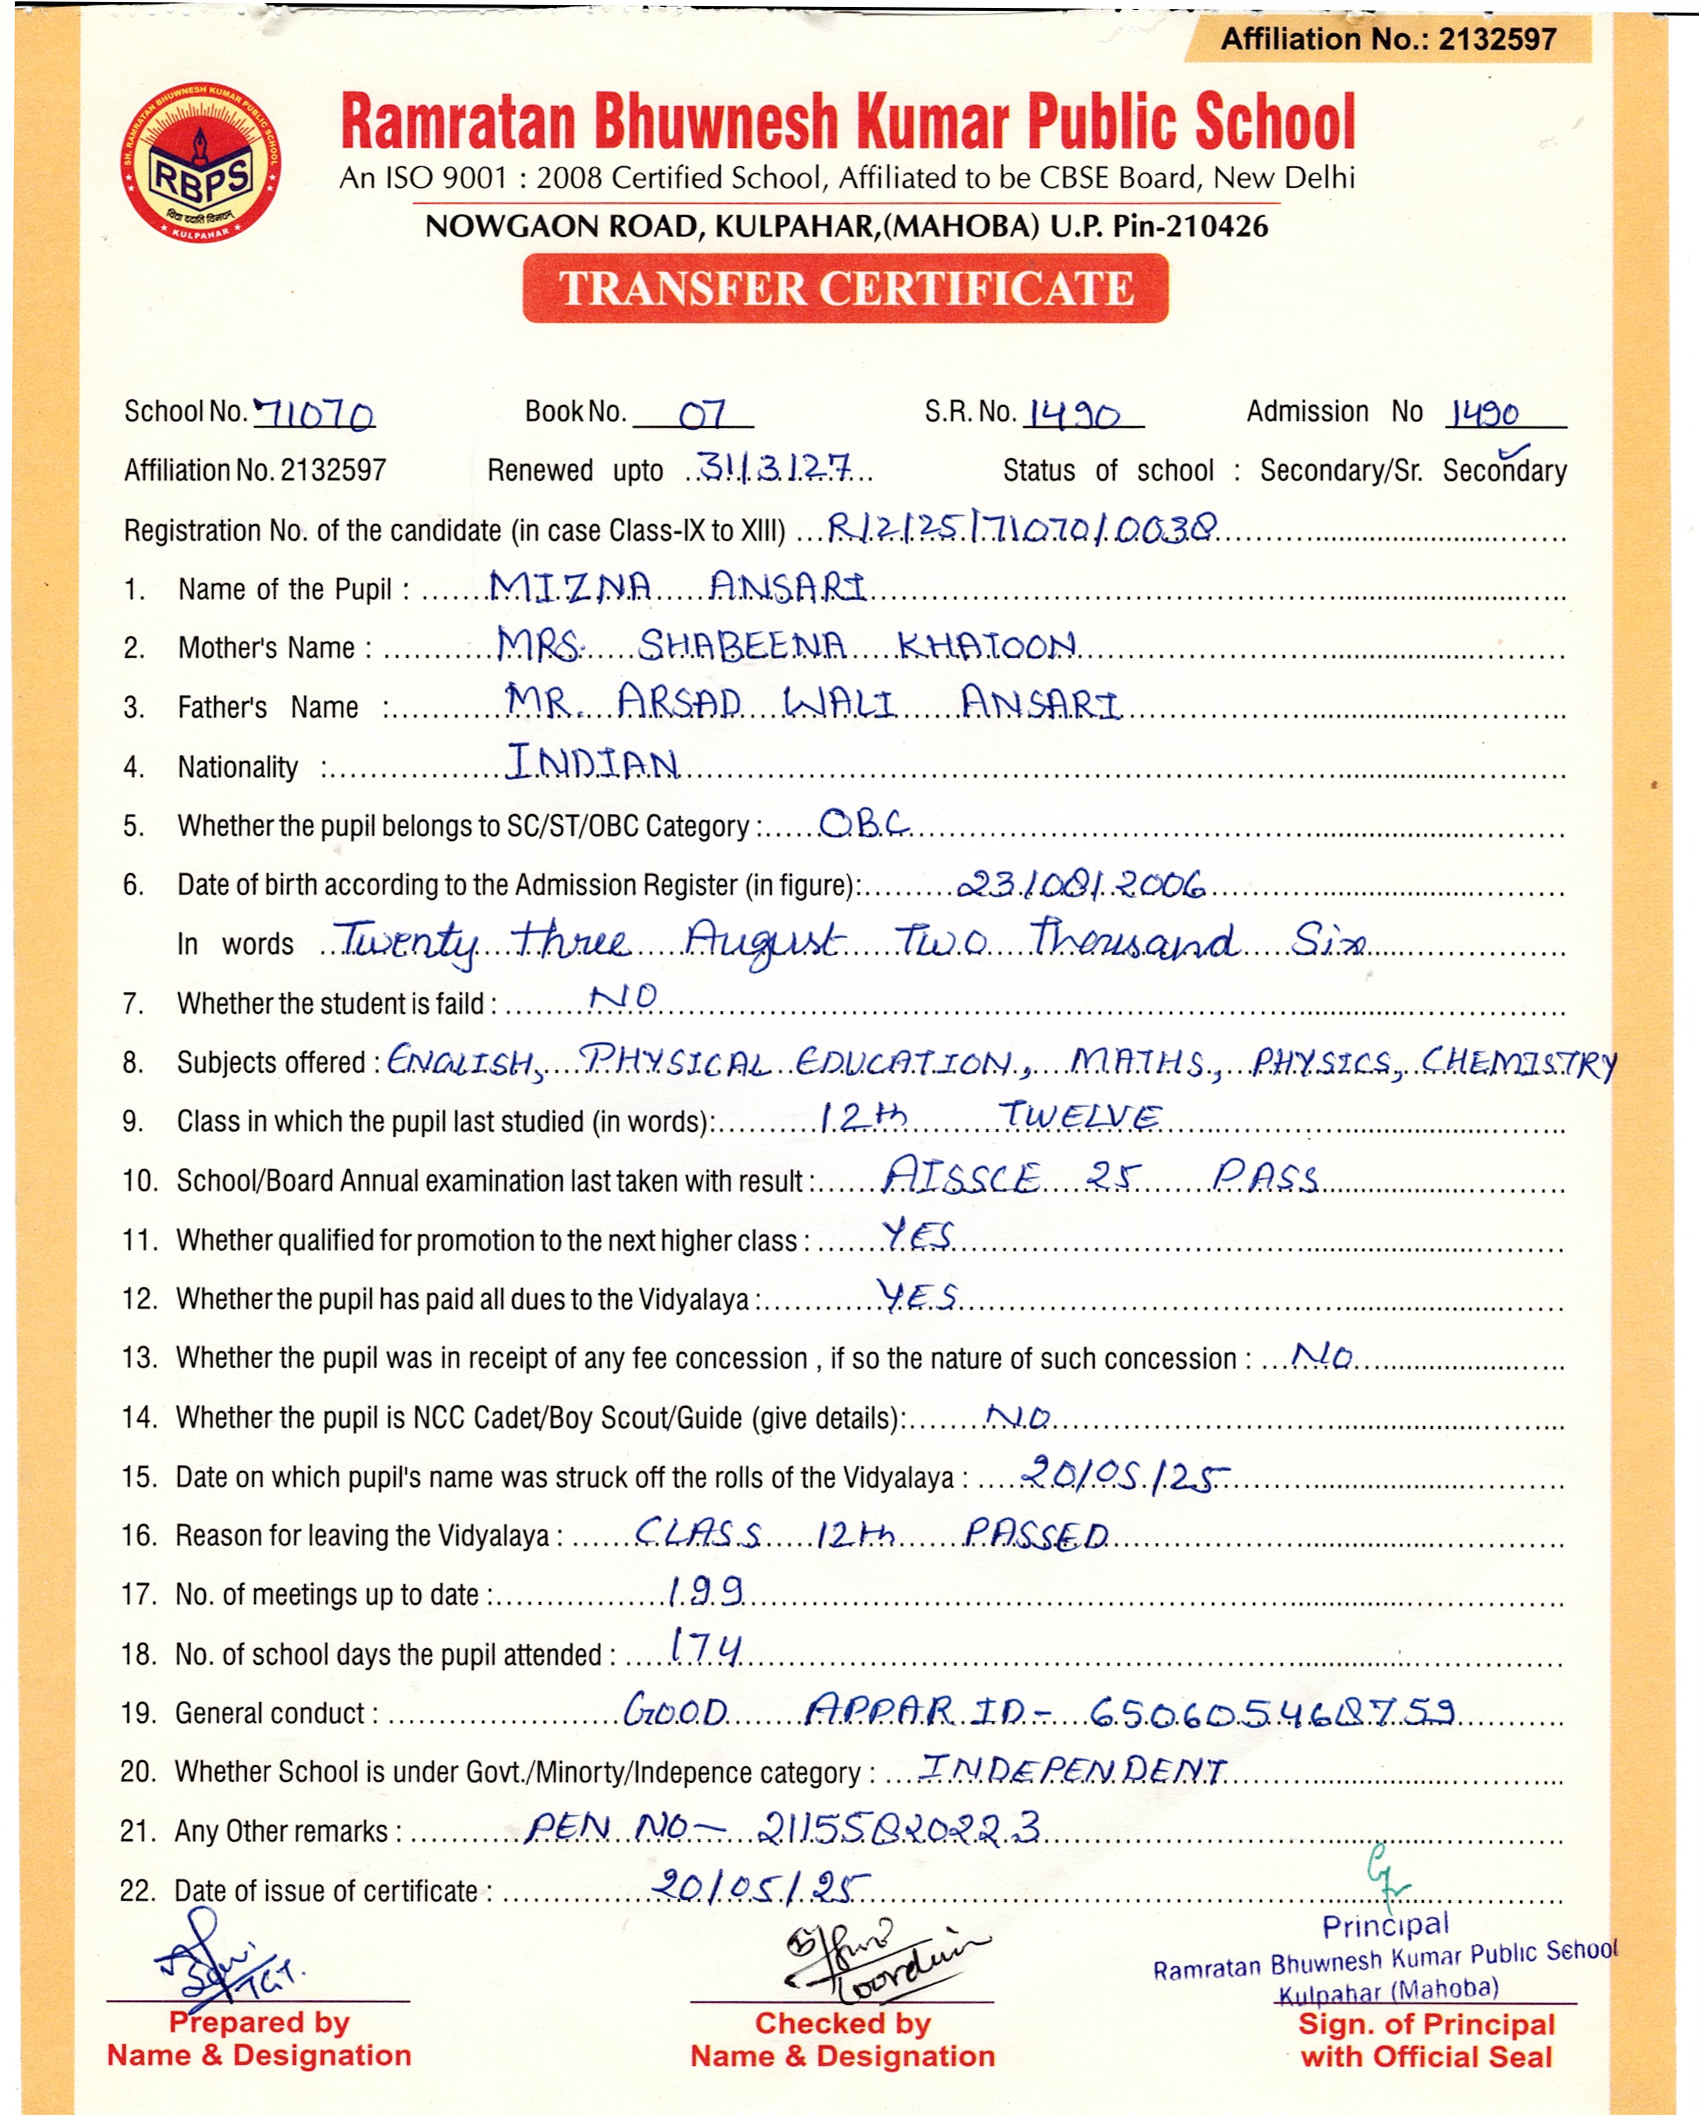 Affiliation No.: 2132597
SH. RAMRATAN BHUWNESH KUMAR PUBLIC SCHOOL
RBPS
विद्या ददाति विनयम्
KULPAHAR
Ramratan Bhuwnesh Kumar Public School
An ISO 9001 : 2008 Certified School, Affiliated to be CBSE Board, New Delhi
NOWGAON ROAD, KULPAHAR,(MAHOBA) U.P. Pin-210426
TRANSFER CERTIFICATE
School No. 71070 Book No. 07 S.R. No. 1490 Admission No 1490
Affiliation No. 2132597 Renewed upto 31/3/27 Status of school : Secondary/Sr. Secondary
Registration No. of the candidate (in case Class-IX to XIII) R/2/25/71070/0038
1. Name of the Pupil : MIZNA ANSARI
2. Mother's Name : MRS. SHABEENA KHATOON
3. Father's Name : MR. ARSAD WALI ANSARI
4. Nationality : INDIAN
5. Whether the pupil belongs to SC/ST/OBC Category : OBC
6. Date of birth according to the Admission Register (in figure): 23/08/2006
In words Twenty three August Two Thousand Six
7. Whether the student is faild : NO
8. Subjects offered : ENGLISH, PHYSICAL EDUCATION, MATHS, PHYSICS, CHEMISTRY
9. Class in which the pupil last studied (in words): 12th TWELVE
10. School/Board Annual examination last taken with result : AISSCE 25 PASS
11. Whether qualified for promotion to the next higher class : YES
12. Whether the pupil has paid all dues to the Vidyalaya : YES
13. Whether the pupil was in receipt of any fee concession , if so the nature of such concession : NO
14. Whether the pupil is NCC Cadet/Boy Scout/Guide (give details): NO
15. Date on which pupil's name was struck off the rolls of the Vidyalaya : 20/05/25
16. Reason for leaving the Vidyalaya : CLASS 12th PASSED
17. No. of meetings up to date : 199
18. No. of school days the pupil attended : 174
19. General conduct : GOOD APPAR ID- 650605468759
20. Whether School is under Govt./Minorty/Indepence category : INDEPENDENT
21. Any Other remarks : PEN NO- 21155820223
22. Date of issue of certificate : 20/05/25
TGT.
Principal
Ramratan Bhuwnesh Kumar Public School
Kulpahar (Mahoba)
Prepared by Checked by Sign. of Principal
Name & Designation Name & Designation with Official Seal